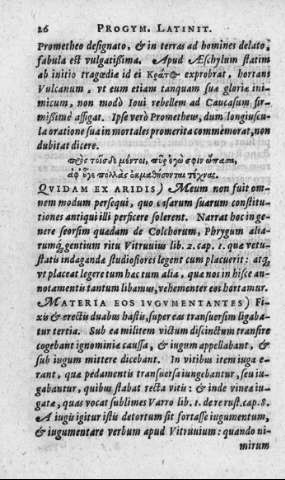 26 PROGYM. LATINIT.
Prometheo designato, & in terras ad homines delato,
fabula est vulgatißima. Apud Æschylum statim
ab initio tragœdia id ei Κρατ@ exprobrat, hortans
Vulcanum, vt eum etiam tanquam sua gloria ini-
micum, non modò Ioui rebellem ad Caucasum fir-
mißimè affigat. Ipse verò Prometheus, dum longiuscu-
la oratione sua in mortales promerita commemorat, non
dubitat dicere.
πρὸς τοῖσδε μέντοι, πῦρ ἐγώ σφιν ὤπασα,
ἀφ᾽ οὗ γε πολλὰς ἐκμαθήσονται τέχνας.
QVIDAM EX ARIDIS) Meum non fuit om-
nem modum persequi, quo casarum suarum constitu-
tiones antiqui illi perficere solerent. Narrat hoc inge-
nere seorsim quadam de Colchorum, Phrygum alia-
rumq́; gentium ritu Vitruuius lib. 2. cap. 1. qua vetu-
statis indaganda studiosiores legent cum placuerit: atq́;
vt placeat legere tum hac tum alia, qua nos in hisce an-
notamentis tantum libamus, vehementer eos hortamur.
MATERIA EOS IVGVMENTANTES) Fi-
xis & erectis duabus hastis, super eas transuersim ligaba-
tur tertia. Sub ea militem victum discinctum transire
cogebant ignominia caussa, & iugum appellabant, &
sub iugum mittere dicebant. In vitibus item iuga e-
rant, qua pedamentis transuersa iungebantur, seu iu-
gabantur, quibus stabat recta vitis: & inde vinea iu-
gata, quas vocat sublimes Varro lib. 1. de re rust. cap. 8.
A iugis igitur istis detortum sit fortasse iugumentum,
& iugumentare verbum apud Vitruuium: quando ni-
mirum